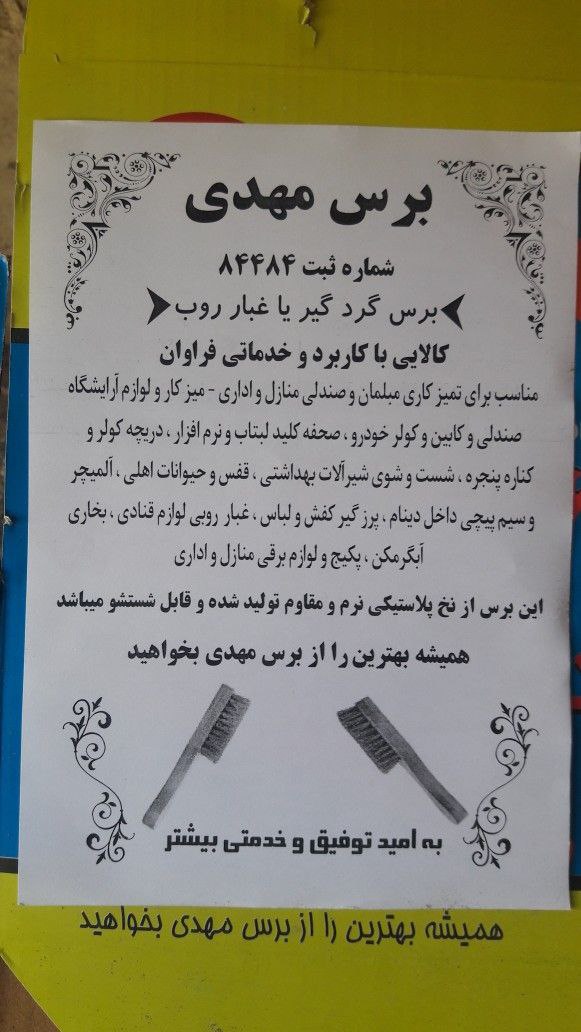 برس مهدی
شماره ثبت ۸۴۴۸۴
برس گرد گیر یا غبار روب
کالایی با کاربرد و خدماتی فراوان
مناسب برای تمیز کاری مبلمان و صندلی منازل و اداری - میز کار و لوازم آرایشگاه
صندلی و کابین و کولر خودرو ، صحفه کلید لبتاب و نرم افزار ، دریچه کولر و
کناره پنجره ، شست و شوی شیرآلات بهداشتی ، قفس و حیوانات اهلی ، آلمیچر
و سیم پیچی داخل دینام ، پرز گیر کفش و لباس ، غبار روبی لوازم قنادی ، بخاری
آبگرمکن ، پکیج و لوازم برقی منازل و اداری
این برس از نخ پلاستیکی نرم و مقاوم تولید شده و قابل شستشو میباشد
همیشه بهترین را از برس مهدی بخواهید
به امید توفیق و خدمتی بیشتر
همیشه بهترین را از برس مهدی بخواهید